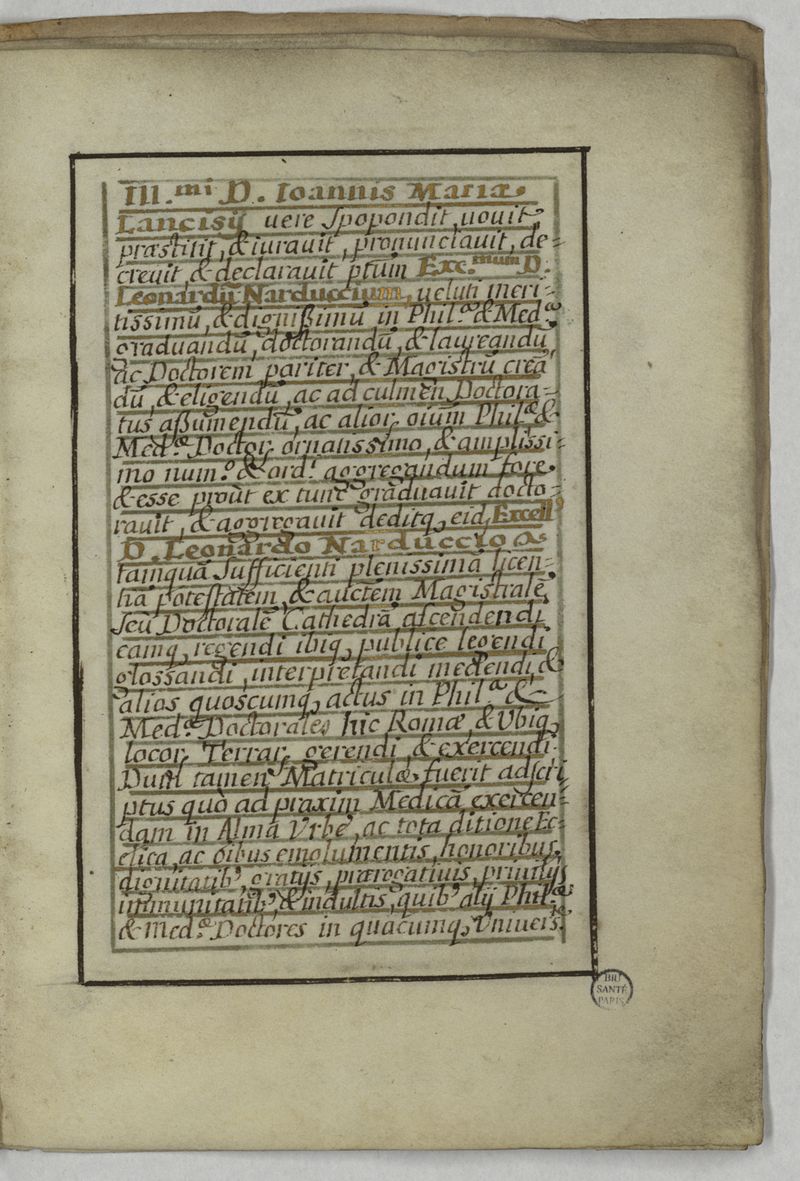 Ill.mi D. Ioannis Mariæ
Lancisÿ uere spopondit, uouit,
præstitit, & iurauit, pronunciauit, de=
creuit, & declarauit ptum Exc.mum D.
Leonardũ Narduccium, ueluti meri=
tissimũ, & dignißimũ in Phil.a & Med.a
graduandũ, doctorandũ, & laureandũ,
ac Doctorem pariter, & Magistrũ creã
dũ, & eligendũ, ac ad culmen Doctora=
tus aßumendũ, ac alior, oium Phil.a &
Med.a Doctor, ornatissimo, & amplissi=
mo num.o & ord.i aggregandum fore,
& esse proùt ex tunc graduauit docto=
rauit, & aggregauit deditq, eid, Excell.o
D. Leonardo Narduccio
tamquã sufficienti plenissimã licen=
tiã potestatem, & auctem Magistralẽ,
seù Doctoralẽ Cathedrã ascendendi
eamq, regendi ibiq, publice legendi
glossandi, interpretandi medendi, &
alios quoscumq, actus in Phil.a &
Med.a Doctorales hic Romæ, & Vbiq,
locor, Terrar, gerendi, & exercendi.
Dum tamen Matriculæ fuerit adscri
ptus quò ad praxim Medicã exercen=
dam in Alma Vrbe, ac tota ditione Ec=
clica, ac õibus emolumentis, honoribus,
dignitatib,, gratÿs, prærogatiuis, priuilÿs
immunitatib,, & indultis, quib, alÿ Phil.æ
& Med.a Doctores in quacumq, Vniuers.
BIU
SANTÉ
PARIS